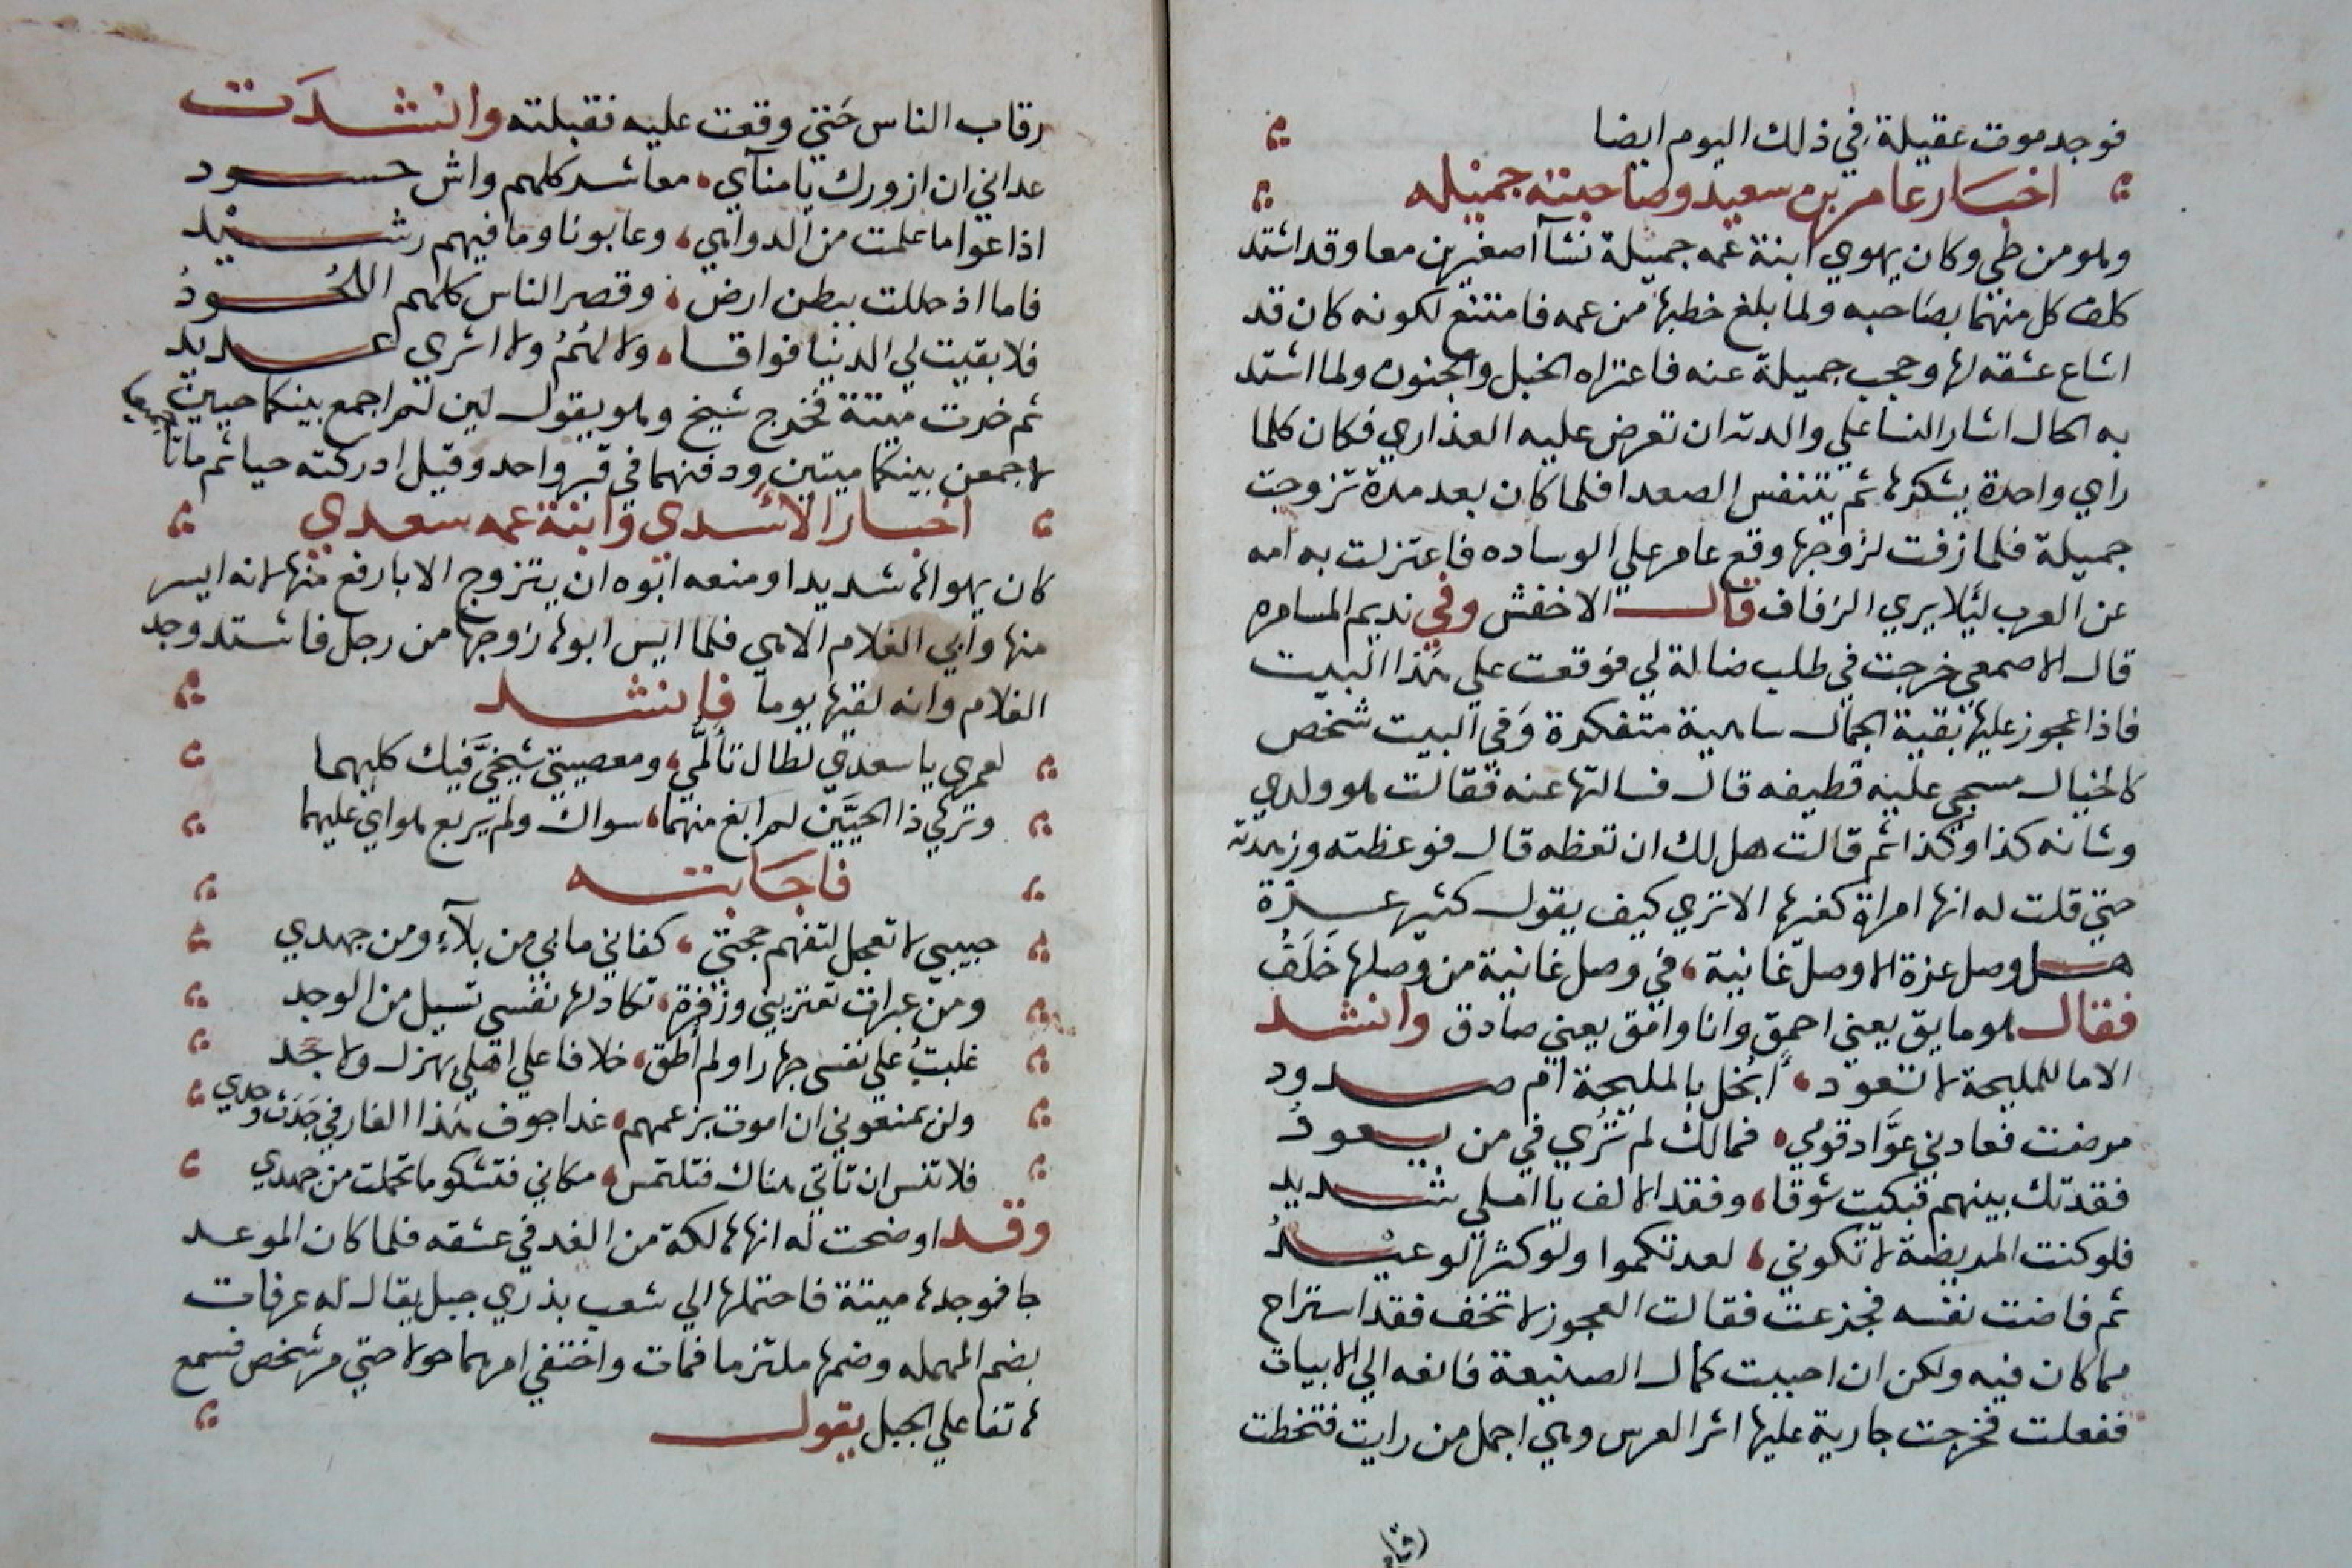 فوجد موت عقيلة في ذلك اليوم ايضا
اخبار عامر بن سعيد وصاحبته جميله
وهو من طي وكان يهوي ابنة عمه جميلة نشآ صغيرين معا وقد اشتد
كلف كل منهما بصاحبه ولما بلغ خطبها من عمه فامتنع لكونه كان قد
اشاع عشقه لها وحجب جميلة عنه فاعتراه الخبل والجنون ولما اشتد
به الحال اشار النسا علي والدته ان تعرض عليه العذاري فكان كلما
راي واحدة يشكرها ثم يتنفس الصعدا فلما كان بعد مدة تزوجت
جميلة فلما زفت لزوجها وقع عامر علي الوساده فاعتزلت به امه
عن العرب ليًلا يري الزفاف قال الاخفش وفي نديم المسامره
قال الاصمعي خرجت في طلب ضالة لي فوقعت علي هذا البيت
فاذا عجوز عليها بقية الجمال ساهية متفكرة وَفي البيت شخص
كالخيال مسجي عليه قطيفه قال فسالتها عنه فقالت هو ولدي
وشانه كذا وكذا ثم قالت هل لك ان تعظه قال فوعظته وزهدته
حتي قلت له انها امراة كغيرها الا تري كيف يقول كثير عزة
هل وصل عزة الا وصل غانية، في وصل غانية من وصلها خَلَفُ
فقال هو مايق يعني احمق وانا وامق يعني صادق وانشد
الا ما للمليحة لا تعود، أبُخل بالمليحة ام صدود
مرضت فعادني عوَّاد قومي، فمالك لم تُرَي في من يعودُ
فقدتك بينهم فبكيت شوقا، وفقد الالف يا املي شديد
فلو كنت المريضة لا تكوني، لعدتكموا ولو كثر الوعيدُ
ثم فاضت نفسه فجزعت فقالت العجوز لا تخف فقد استراح
مما كان فيه ولكن ان احببت كمال الصنيعة فانعه الي الابيات
ففعلت فخرجت جارية عليها اثر العرس وهي اجمل من رايت فتخطت
رقاب
رقاب الناس حَتي وقعت عليه فقبلته وانشدَت
عداني ان ازورك يا مناي، معاشر كلهم واش حسود
اذاعوا ما علمت من الدواهي، وعابونا وما فيهم رشيد
فاما اذ حللت ببطن ارض، وقصر الناس كلهم اللحُودُ
فلا بقيت لي الدنيا فواقا، ولا لهُمُ ولا اثري عديد
ثم خرت ميتة فخرج شيخ وهو يقول لين لم اجمع بينكما حيين
لاجمعن بينكما ميتين ودفنهما في قبر واحد وقيل ادركته حيا ثم ماتا جميعا
اخبار الاسدي وابنة عمه سعدي
كان يهواها شديدا ومنعه ابوه ان يتزوج الا بارفع منها لانه ايسر
منها وابي الغلام الا هي فلما ايس ابوها زوجها من رجل فاشتد وجد
الغلام وانه لقيها يوما فانشد
لعمري يا سعدي لطال تأَلمي، ومعصيتي شيخيَّ فيك كليهما
وتركي ذا الحيَّين لم ابغ منهما، سواك ولم يربع هواي عليهما
فاجابته
حبيبي لا تعجل لتفهم حجتي، كفاني ما بي من بلآءٍ ومن جهدي
ومن عبرات تعتريني وزفرة، تكاد لها نفسي تسيل من الوجد
غلبتُ علي نفسي جهارا ولم أطق، خلافا علي اهلي بهزل ولا جَد
ولن يمنعوني ان اموت بزعمهم، غدا جوف هذا الغار في جَدَث وحدي
فلا تنس ان تاتي هناك فتلتمس، مكاني فتشكو ما تحملت من جهدي
وقد اوضحت له انها هالكة من الغد في عشقه فلما كان الموعد
جا فوجدها ميتة فاحتملها الي شعب بذري جبل يقال له عرفات
بضم المهمله وضمها ملتزما فمات واختفي امرهما حولا حتي مر شخص فسمع
هاتفا علي الجبل يقول